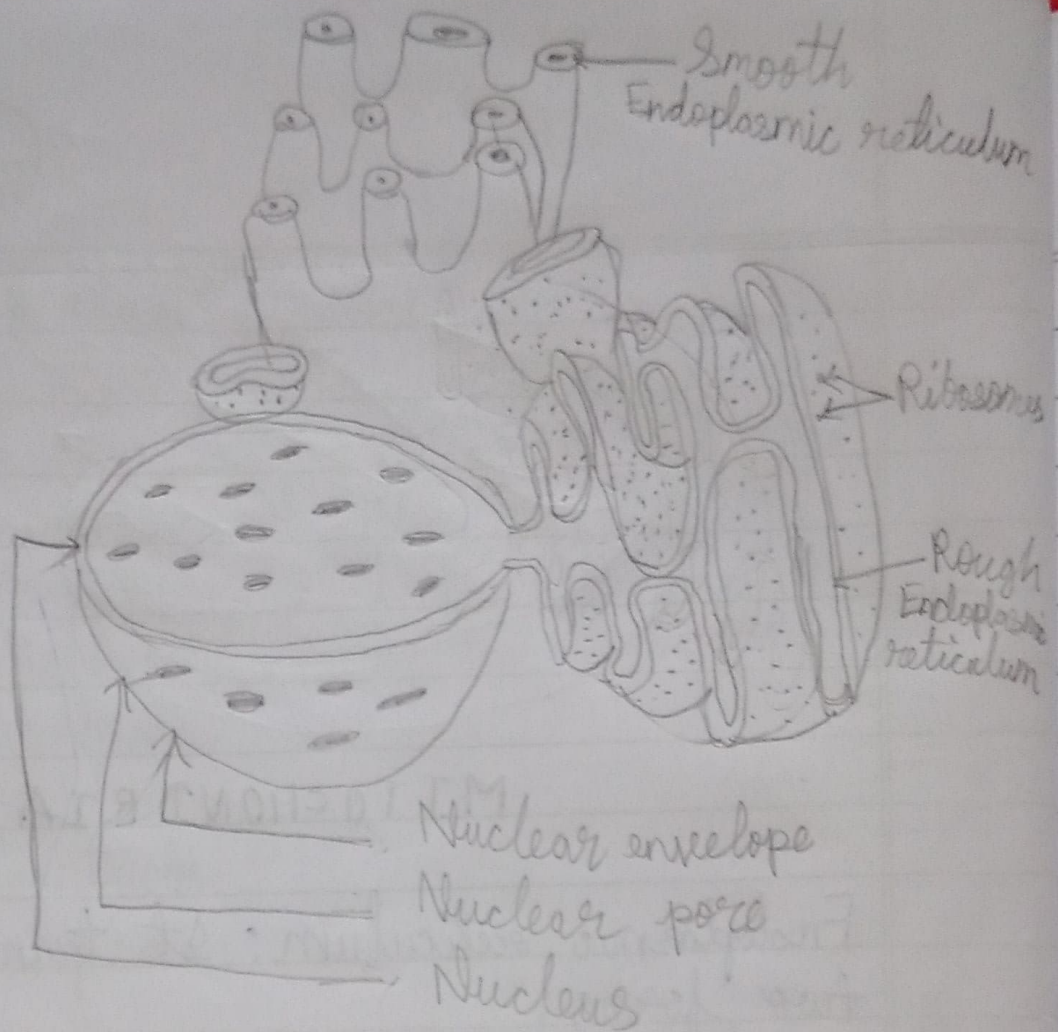 Smooth
Endoplasmic reticulum
Ribosomes
Rough
Endoplasmi
reticulum
Nuclear envelope
Nuclear pore
Nucleus